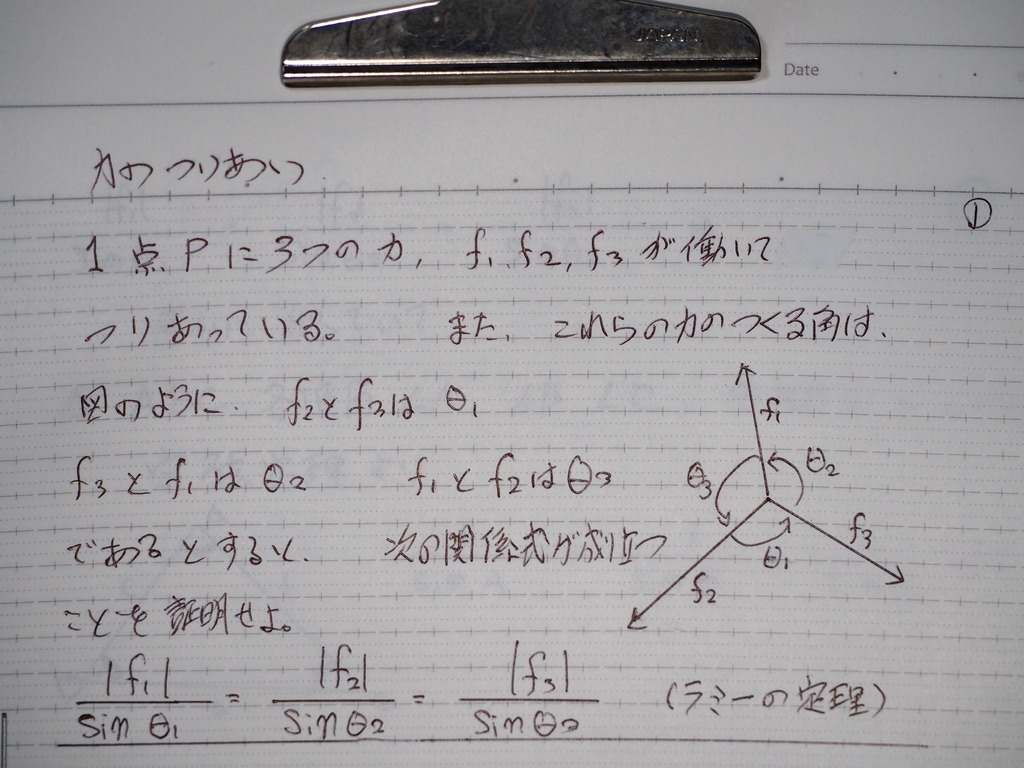 JAPAN
Date
力のつりあい
①
1点Pに3つの力, f1, f2, f3が働いて
つりあっている。 また, これらの力のつくる角は,
図のように, f2とf3は θ1
f3とf1は θ2 f1とf2はθ3
であるとすると, 次の関係式が成立つ
ことを証明せよ。
f1
θ3 θ2
f3
θ1
f2
|f1|/Sin θ1 = |f2|/Sin θ2 = |f3|/Sin θ3 (ラミーの定理)